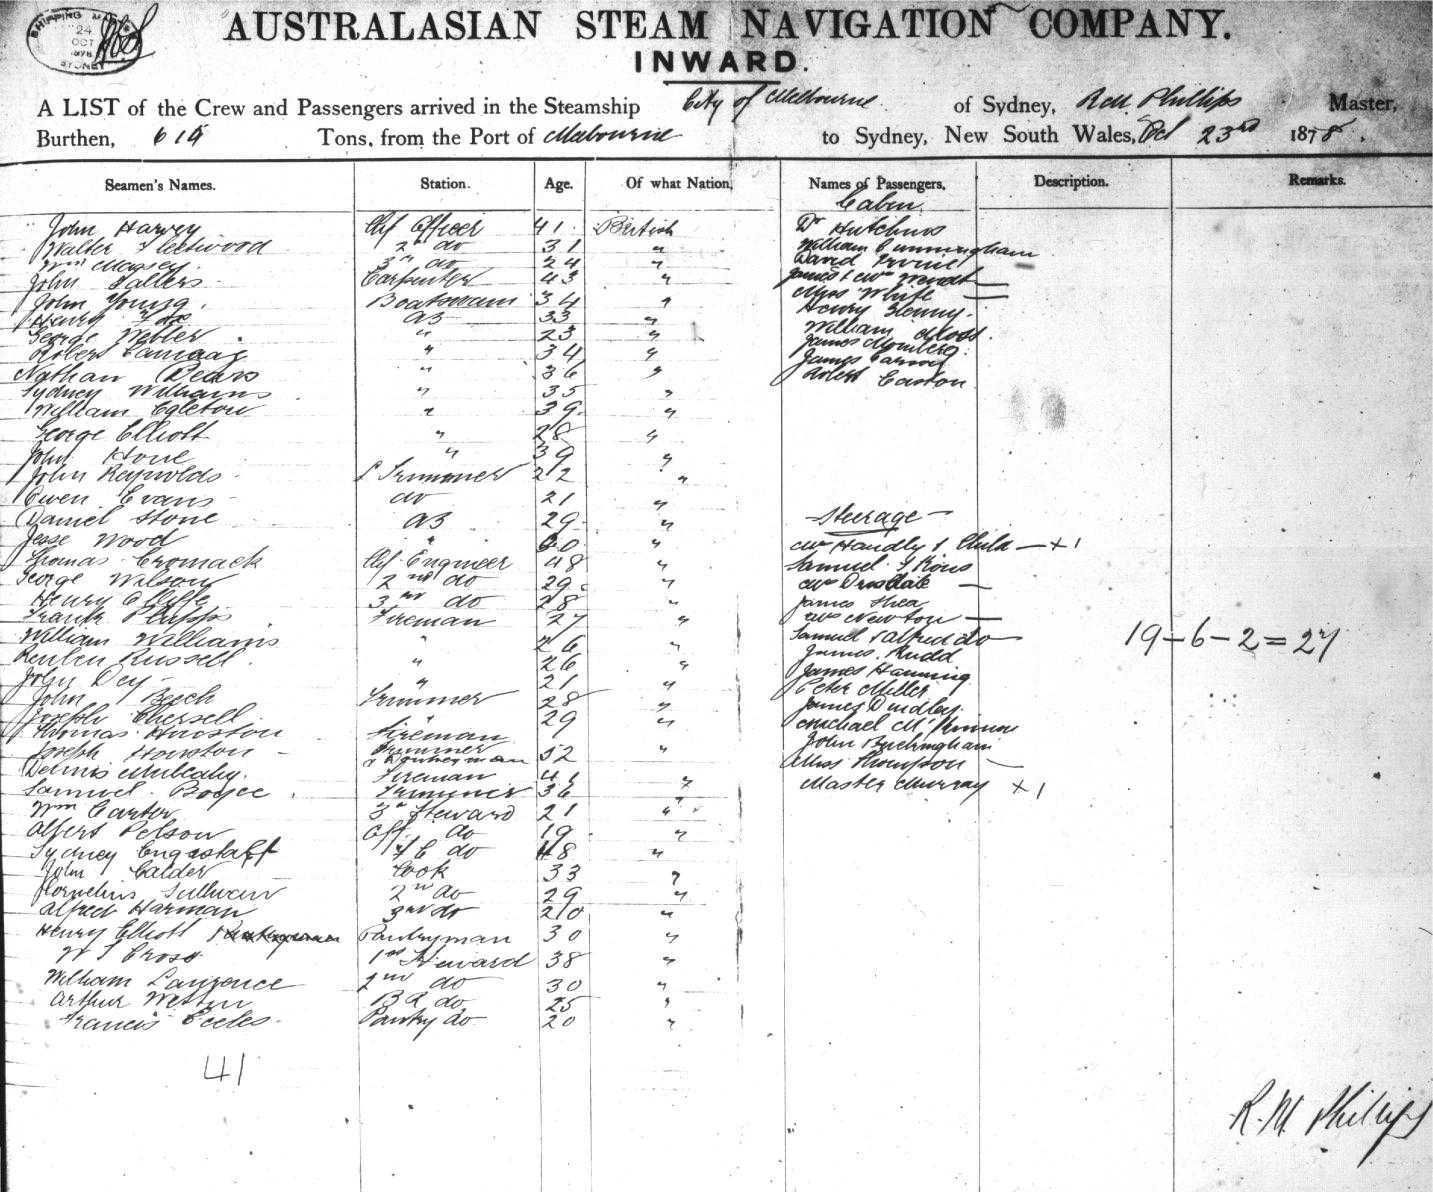 SHIPPING MASTER
24
OCT
1878
SYDNEY
AUSTRALASIAN STEAM NAVIGATION COMPANY.
INWARD.
A LIST of the Crew and Passengers arrived in the Steamship City of Melbourne of Sydney, R M Phillips Master,
Burthen, 615 Tons, from the Port of Melbourne to Sydney, New South Wales, Oct 23rd 1878.
Seamen's Names. Station. Age. Of what Nation. Names of Passengers. Description. Remarks.
Cabin
John Harvey Chf Officer 41 British Dr Hutchins
Walter Fleetwood 2nd do 31 " William Cunningham
Wm Massey 3rd do 24 " David
John Sallers Carpenter 43 " James & Mrs Wendt
John Young Boatswain 34 " Miss White
Henry AB 33 " Henry
George Webler " 23 " William Moss
Robert " 34 " James
Nathan Dears " 36 " James
Sydney Williams " 35 " Robert Easton
William Egleton " 39 "
George Elliott " 28 "
John Hone " 39 "
John Reynolds Trimmer 22 "
Owen Evans do 21 "
Daniel Stone AB 29 " Steerage
Jesse Wood " 60 " Mrs Handly & Child — x 1
Thomas Cromack Chf Engineer 48 " Samuel
George Wilson 2nd do 29 " Mrs Drisdale
Henry Cliffe 3rd do 28 " James Shea
Frank Phipps Fireman 27 " Mrs Newton
William Williams " 26 " Samuel & Alfred do
Reuben Russell " 26 " James Rudd
19 - 6 - 2 = 27
John Dey " 21 " James Hanning
John Beech Trimmer 28 " Peter Miller
Joseph " 29 " James Dindley
Thomas Houston Fireman Michael
Joseph Houston Trimmer & Donkeyman 52 " John Buckingham
Dennis Mulcahy Fireman 41 " Miss Thompson
Samuel Boyce Trimmer 36 " Master Murray x 1
Wm Carter 3rd Steward 21 "
Albert Pelson Aft do 19 "
Sydney Engestaff F C do 48 "
John Calder Cook 33 "
Cornelius Sullivan 2nd do 29 "
Alfred Harman 3rd do 20 "
Henry Elliott Pantryman 30 "
W J Cross 1st Steward 38 "
William Lawrence 2nd do 30 "
Arthur Weston B R do 25 "
Francis Eccles Pantry do 20 "
41
R. M. Phillips